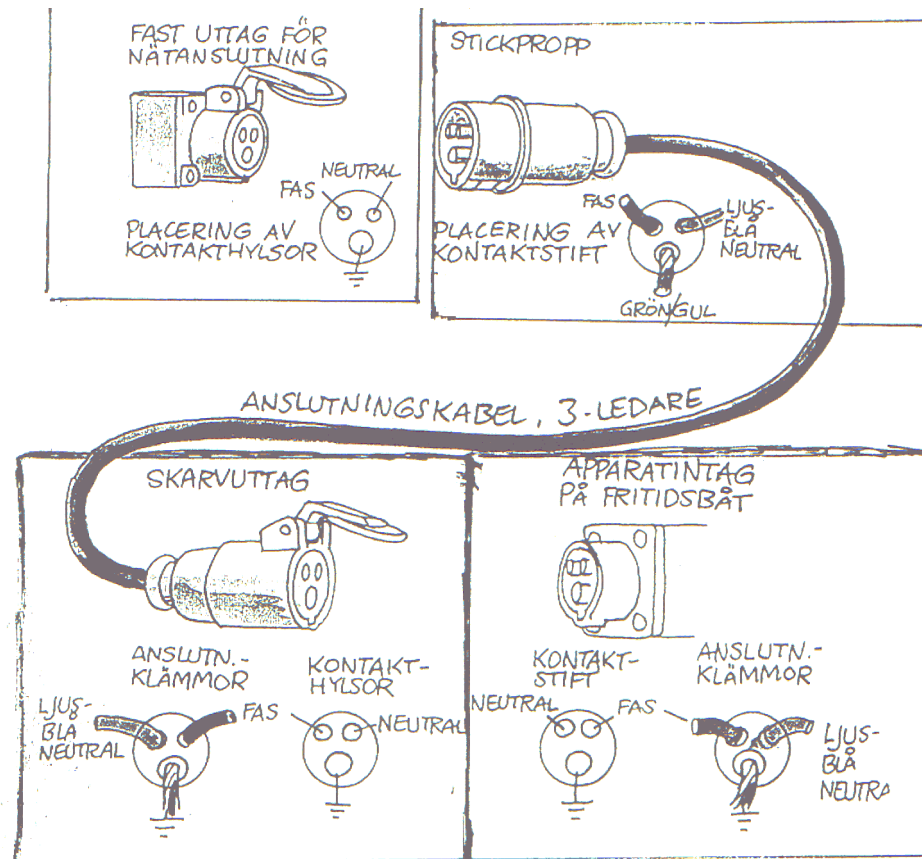 FAST UTTAG FÖR
NÄTANSLUTNING
NEUTRAL
FAS
PLACERING AV
KONTAKTHYLSOR
STICKPROPP
FAS
LJUS-
BLÅ
NEUTRAL
PLACERING AV
KONTAKTSTIFT
GRÖN/GUL
ANSLUTNINGSKABEL, 3-LEDARE
SKARVUTTAG
ANSLUTN.-
KLÄMMOR
LJUS-
BLÅ
NEUTRAL
FAS
KONTAKT-
HYLSOR
NEUTRAL
APPARATINTAG
PÅ FRITIDSBÅT
KONTAKT-
STIFT
NEUTRAL
FAS
ANSLUTN.-
KLÄMMOR
LJUS-
BLÅ
NEUTRA